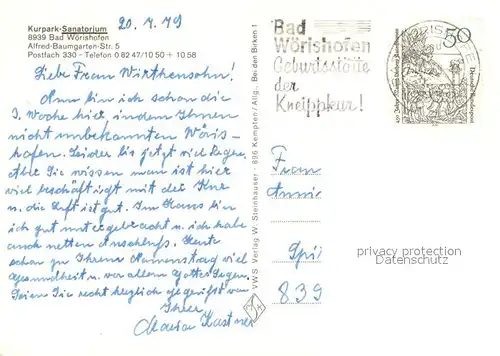 20.7.79
Kurpark-Sanatorium
8939 Bad Wörishofen
Alfred-Baumgarten-Str. 5
Postfach 330 - Telefon 0 82 47/10 50 + 10 58
Liebe Frau Wirthensohn!
Nun bin ich schon die
3. Woche hier, in dem Ihnen
nicht unbekannten Wöris-
hofen. Leider bis jetzt viel Regen.
Aber Sie wissen man ist hier
viel beschäftigt mit der Kur
u. die Luft ist gut. Im Haus bin
ich gut untergebracht u. ich habe
auch netten Anschluß. Heute
schon zu Ihrem Namenstag viel
Gesundheit u. vor allem Gottes Segen.
Seien Sie recht herzlich gegrüßt von
Ihrer
Maria Kastner
VWS Verlag W. Steinhauser · 896 Kempten/Allg., Bei den Birken 1
Bad
Wörishofen
Geburtsstätte
der
Kneippkur!
50
Frau
Annie
839
privacy protection
Datenschutz